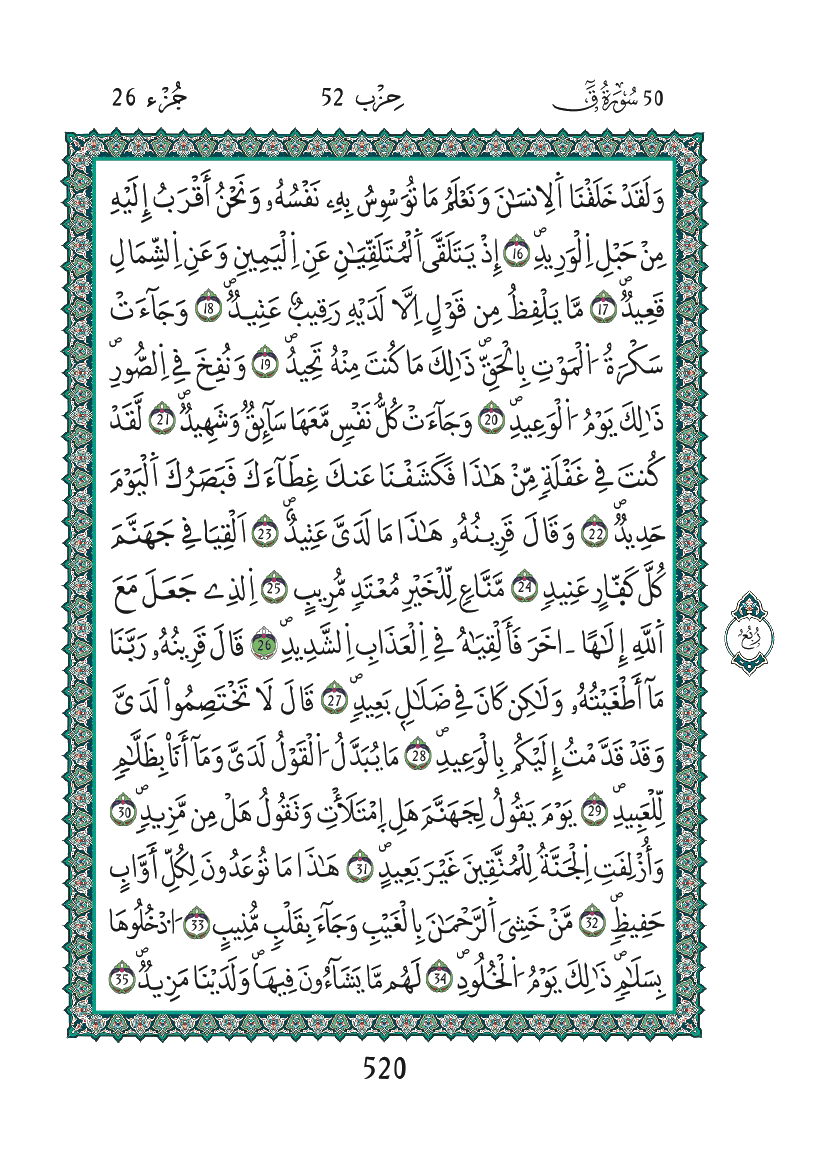 50 سُورَةُ قٓ حِزْب 52 جُزْء 26
وَلَقَدْ خَلَقْنَا اَ۬لِانسَٰنَ وَنَعْلَمُ مَا تُوَسْوِسُ بِهِۦ نَفْسُهُۥ وَنَحْنُ أَقْرَبُ إِلَيْهِ
مِنْ حَبْلِ اِ۬لْوَرِيدِۖ 16 إِذْ يَتَلَقَّى اَ۬لْمُتَلَقِّيَٰنِ عَنِ اِ۬لْيَمِينِ وَعَنِ اِ۬لشِّمَالِ
قَعِيدٞۖ 17 مَّا يَلْفِظُ مِن قَوْلٍ اِلَّا لَدَيْهِ رَقِيبٌ عَتِيدٞۖ 18 وَجَآءَتْ
سَكْرَةُ اُ۬لْمَوْتِ بِالْحَقِّۖ ذَٰلِكَ مَا كُنتَ مِنْهُ تَحِيدُۖ 19 وَنُفِخَ فِے اِ۬لصُّورِۖ
ذَٰلِكَ يَوْمُ اُ۬لْوَعِيدِۖ 20 وَجَآءَتْ كُلُّ نَفْسٖ مَّعَهَا سَآئِقٞ وَشَهِيدٞۖ 21 لَّقَدْ
كُنتَ فِے غَفْلَةٖ مِّنْ هَٰذَا فَكَشَفْنَا عَنكَ غِطَآءَكَ فَبَصَرُكَ اَ۬لْيَوْمَ
حَدِيدٞۖ 22 وَقَالَ قَرِينُهُۥ هَٰذَا مَا لَدَيَّ عَتِيدٌۖ 23 اَلْقِيَا فِے جَهَنَّمَ
كُلَّ كَفّ۪ارٍ عَنِيدٖ 24 مَّنَّاعٖ لِّلْخَيْرِ مُعْتَدٖ مُّرِيبٍ 25 اِ۬لذِے جَعَلَ مَعَ
اَ۬للَّهِ إِلَٰهاً ـ اخَرَ فَأَلْقِيَٰهُ فِے اِ۬لْعَذَابِ اِ۬لشَّدِيدِۖ 26 قَالَ قَرِينُهُۥ رَبَّنَا
رُبُع
مَآ أَطْغَيْتُهُۥ وَلَٰكِن كَانَ فِے ضَلَٰلِۢ بَعِيدٖۖ 27 قَالَ لَا تَخْتَصِمُواْ لَدَيَّ
وَقَدْ قَدَّمْتُ إِلَيْكُم بِالْوَعِيدِۖ 28 مَا يُبَدَّلُ اُ۬لْقَوْلُ لَدَيَّ وَمَآ أَنَا۠ بِظَلَّٰمٖ
لِّلْعَبِيدِۖ 29 يَوْمَ يَقُولُ لِجَهَنَّمَ هَلِ اِ۪مْتَلَأْتِ وَتَقُولُ هَلْ مِن مَّزِيدٖۖ 30
وَأُزْلِفَتِ اِ۬لْجَنَّةُ لِلْمُتَّقِينَ غَيْرَ بَعِيدٍۖ 31 هَٰذَا مَا تُوعَدُونَ لِكُلِّ أَوَّابٍ
حَفِيظٖۖ 32 مَّنْ خَشِيَ اَ۬لرَّحْمَٰنَ بِالْغَيْبِ وَجَآءَ بِقَلْبٖ مُّنِيبٍ 33 اُ۟دْخُلُوهَا
بِسَلَٰمٖۖ ذَٰلِكَ يَوْمُ اُ۬لْخُلُودِۖ 34 لَهُم مَّا يَشَآءُونَ فِيهَاۖ وَلَدَيْنَا مَزِيدٞۖ 35
520